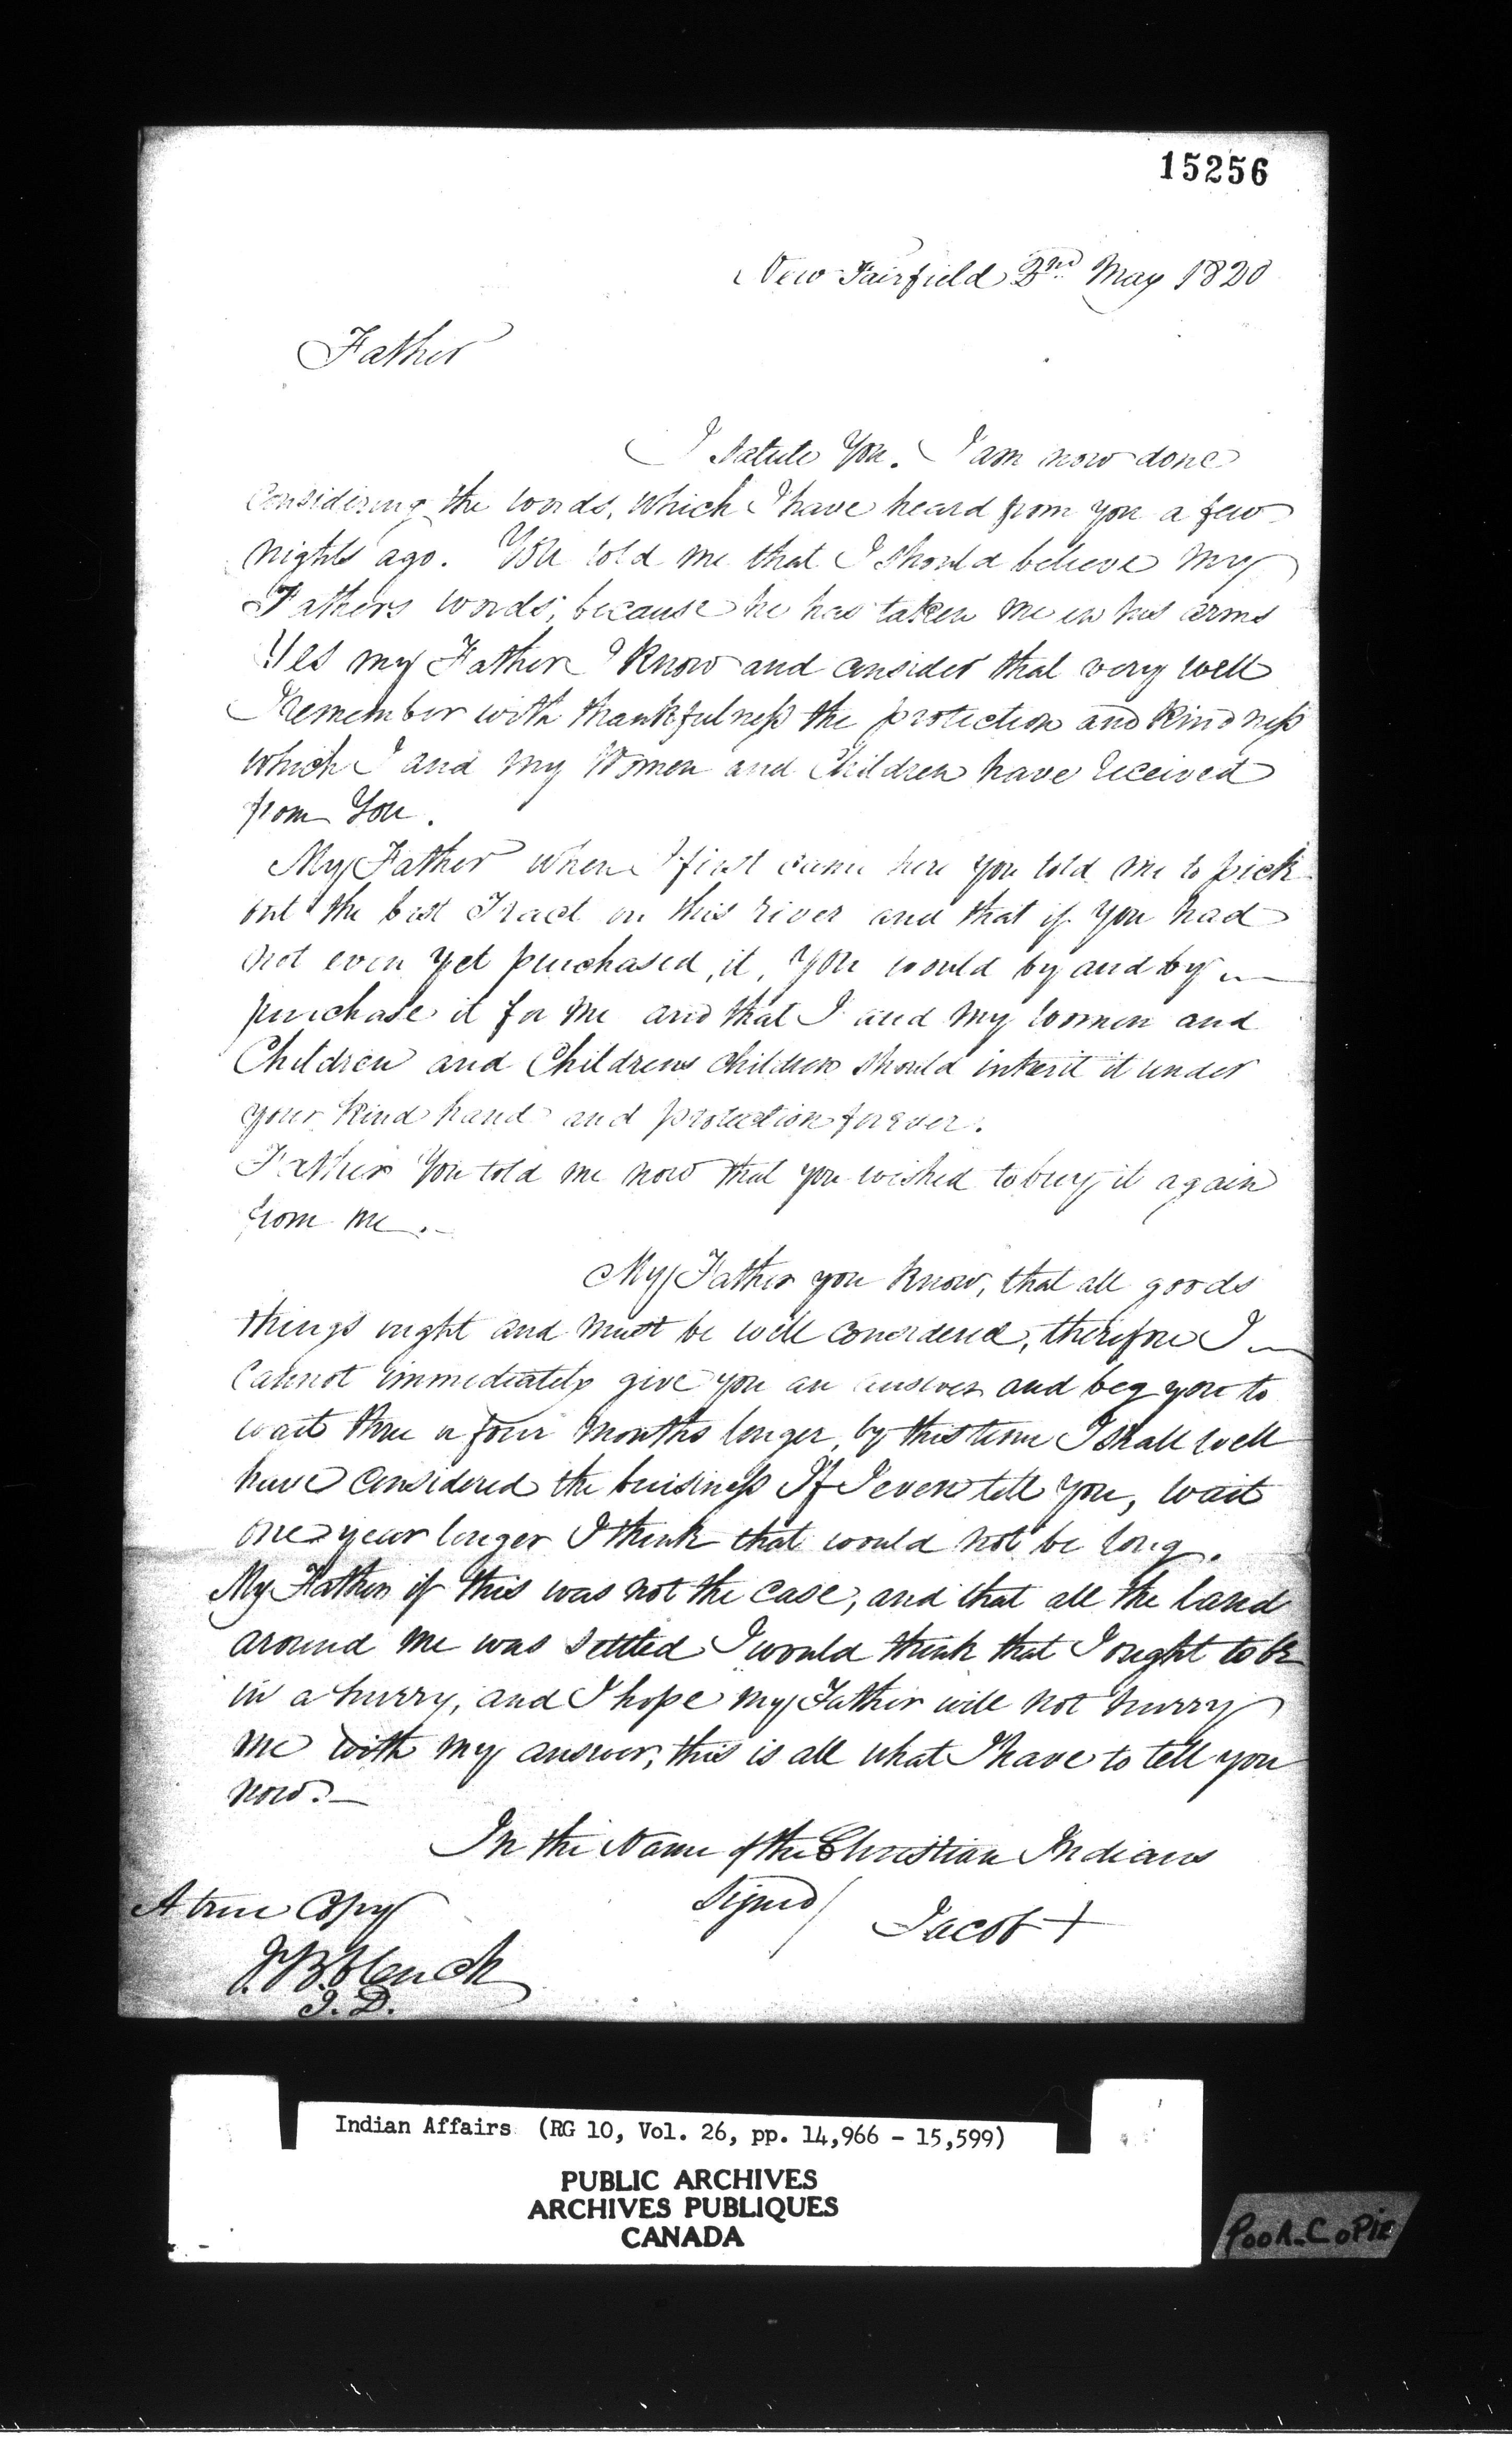 15256
New Fairfield 2nd May 1820
Father
I Salute You. I am now done
Considering the words, which I have heard from you a few
nights ago. You told me that I should believe my
Fathers words, because he has taken me in his arms
Yes my Father I know and consider that very well
I remember with thankfulness the protection and kindness
which I and my Women and Children have received
from You.
My Father when I first came here you told me to pick
out the best Tract on this river and that if you had
not even yet purchased it, you would by and by
purchase it for me and that I and my women and
Children and Childrens children should inherit it under
your kind hand and protection forever.
Father You told me now that you wished to buy it again
from me.-
My Father you know, that all goods
things ought and must be well considered, therefore I
cannot immediately give you an answer and beg you to
wait three or four months longer, by this time I shall well
have considered the buisiness If I even tell You, wait
one year longer I think that would not be long.
My Father if this was not the case, and that all the land
around me was settled I would think that I ought to be
in a hurry, and I hope my Father will not hurry
me with my answer, this is all what I have to tell you
now.—
In the Name of the Christian Indians
Signed/ Jacob +
A true Copy
J.B. Clench
I.D.
Indian Affairs (RG 10, Vol. 26, pp. 14,966 - 15,599)
PUBLIC ARCHIVES
ARCHIVES PUBLIQUES
CANADA
POOR COPIE